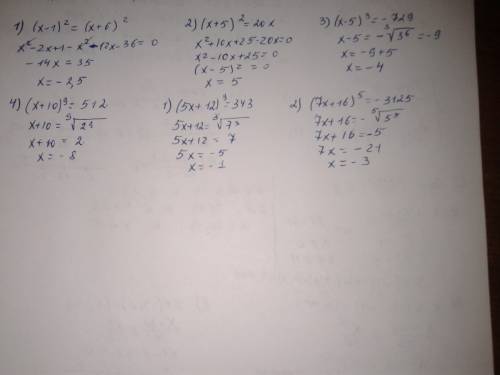 1) (x-1)² = (x+6)²
x² - 2x + 1 - x² - 12x - 36 = 0
- 14x = 35
x = - 2,5
2) (x+5)² = 20x
x² + 10x + 25 - 20x = 0
x² - 10x + 25 = 0
(x - 5)² = 0
x = 5
3) (x-5)³ = - 729
x - 5 = - ∛3⁶ = - 9
x = - 9 + 5
x = - 4
4) (x+10)⁹ = 512
x + 10 = ⁹√2⁹
x + 10 = 2
x = - 8
1) (5x + 12)³ = 343
5x + 12 = ∛7³
5x + 12 = 7
5x = - 5
x = - 1
2) (7x + 16)⁵ = - 3125
7x + 16 = - ⁵√5⁵
7x + 16 = - 5
7x = - 21
x = - 3